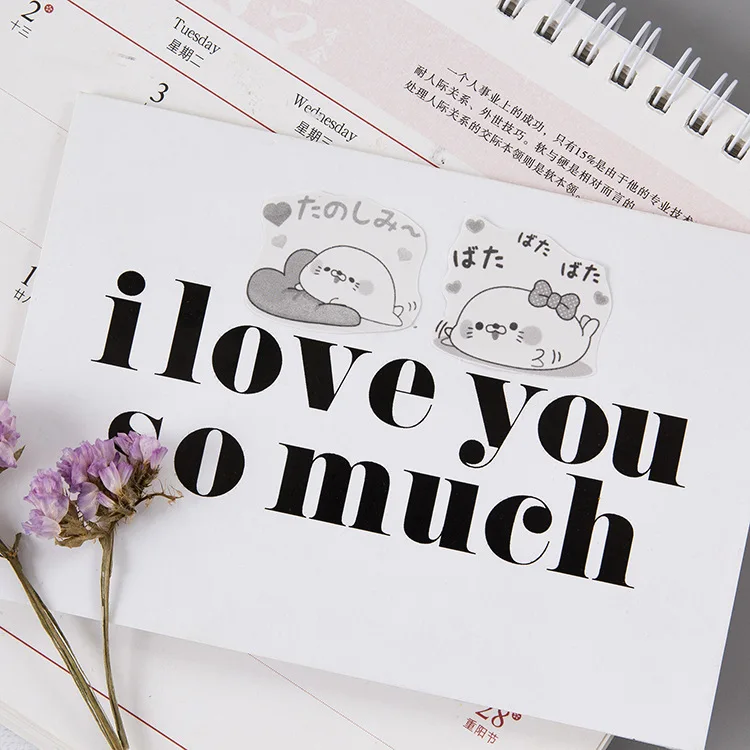 2
十三
Tuesday
星期二
3
Wednesday
星期三
一个人事业上的成功，只有15%是由于他的专业技术
耐人际关系、外世技巧。软与硬是相对而言的
处理人际关系的交际本领则是软本领
たのしみ〜
ばた
ばた
ばた
i love you
so much
1
廿八
28
重阳节